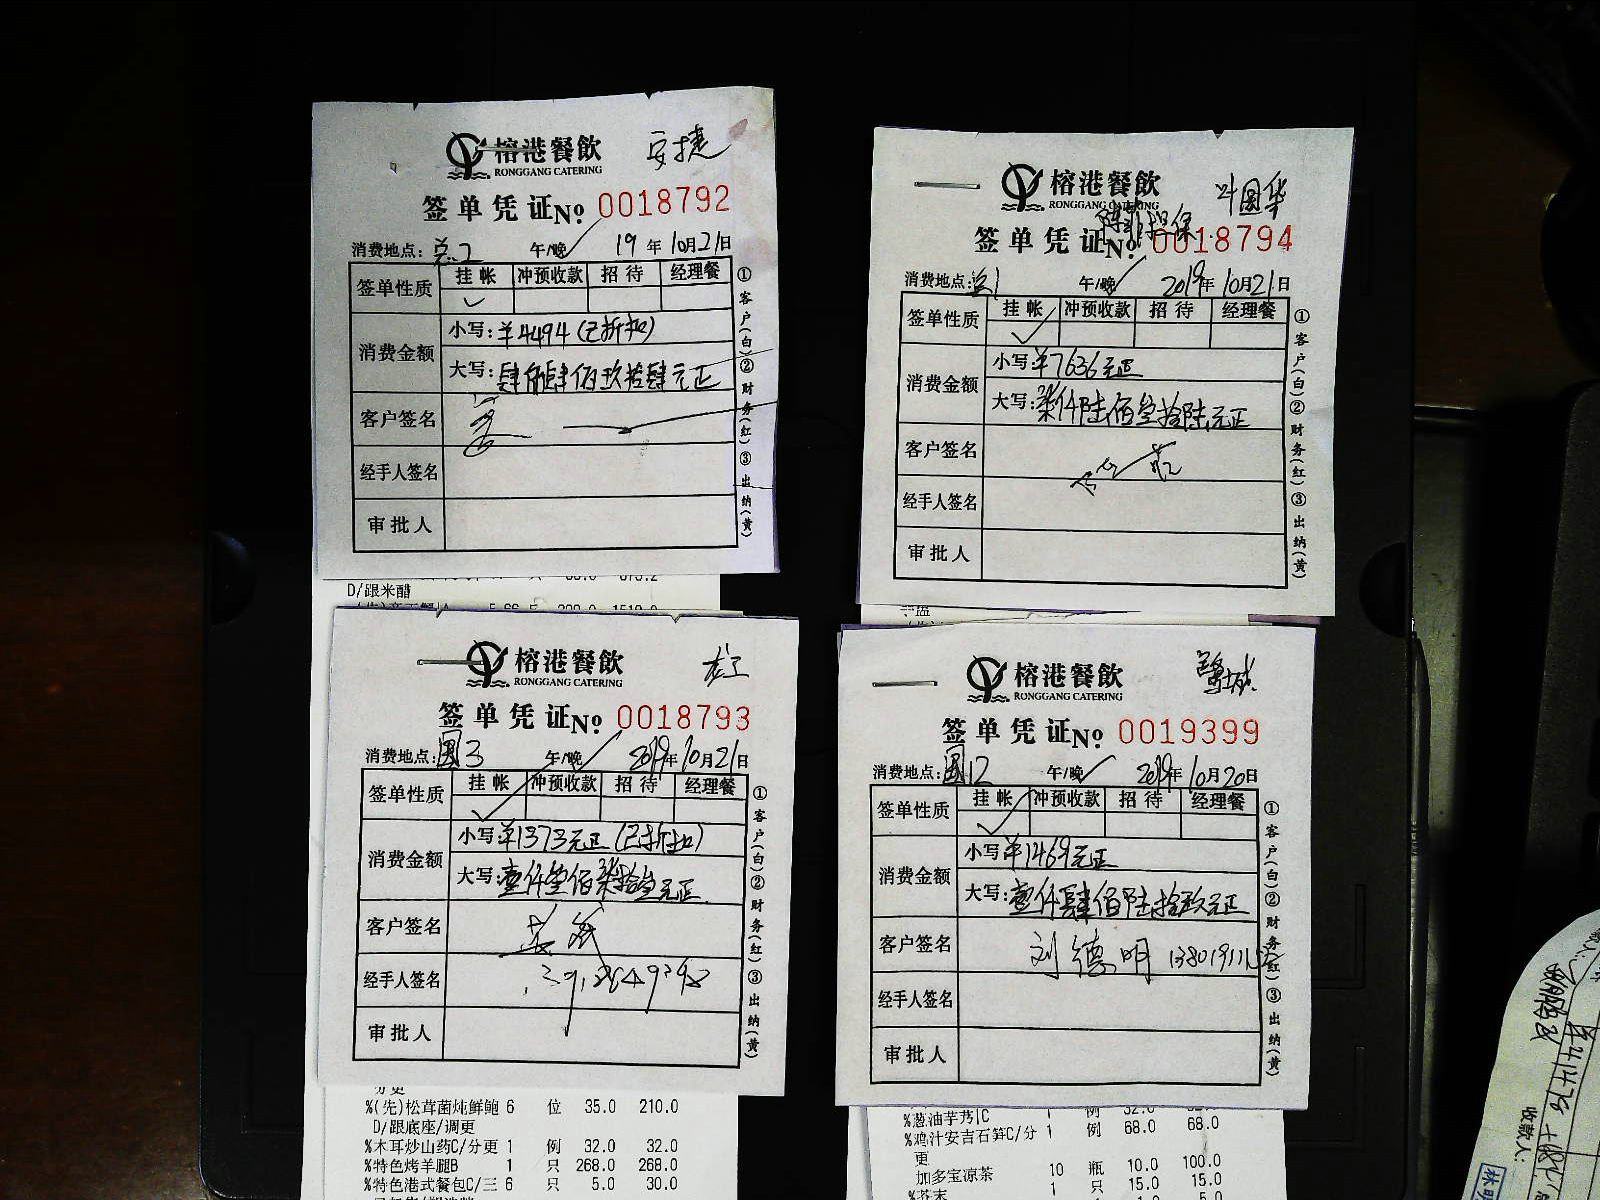 榕港餐飲
安捷
RONGGANG CATERING
签单凭证No 0018792
消费地点: 午/晚 19年10月21日
签单性质 挂帐 冲预收款 招待 经理餐
消费金额
小写:￥4494(已折扣)
大写:肆仟肆佰玖拾肆元正
客户签名
经手人签名
审批人
①客户(白)②财务(红)③出纳(黄)
D/跟米醋
榕港餐飲
叶国华
RONGGANG CATERING
签单凭证No 0018794
消费地点: 午/晚 2019年10月21日
签单性质 挂帐 冲预收款 招待 经理餐
消费金额
小写:￥7636元正
大写:柒仟陆佰叁拾陆元正
客户签名
经手人签名
审批人
①客户(白)②财务(红)③出纳(黄)
榕港餐飲
龙工
RONGGANG CATERING
签单凭证No 0018793
消费地点:国3 午/晚 2019年10月21日
签单性质 挂帐 冲预收款 招待 经理餐
消费金额
小写:￥1373元正(已折扣)
大写:壹仟叁佰柒拾叁元正
客户签名
经手人签名
审批人
①客户(白)②财务(红)③出纳(黄)
%(先)松茸菌炖鲜鲍 6 位 35.0 210.0
D/跟底座/调更
%木耳炒山药C/分更 1 例 32.0 32.0
%特色烤羊腿B 1 只 268.0 268.0
%特色港式餐包C/三 6 只 5.0 30.0
榕港餐飲
鹭城
RONGGANG CATERING
签单凭证No 0019399
消费地点:国12 午/晚 2019年10月20日
签单性质 挂帐 冲预收款 招待 经理餐
消费金额
小写:￥1469元正
大写:壹仟肆佰陆拾玖元正
客户签名 刘德明
经手人签名
审批人
①客户(白)②财务(红)③出纳(黄)
%葱油芋艿|C 1 例 32.0
%鸡汁安吉石笋C/分 1 例 68.0 68.0
更
加多宝凉茶 10 瓶 10.0 100.0
1 只 15.0 15.0
%芥末
收款人: